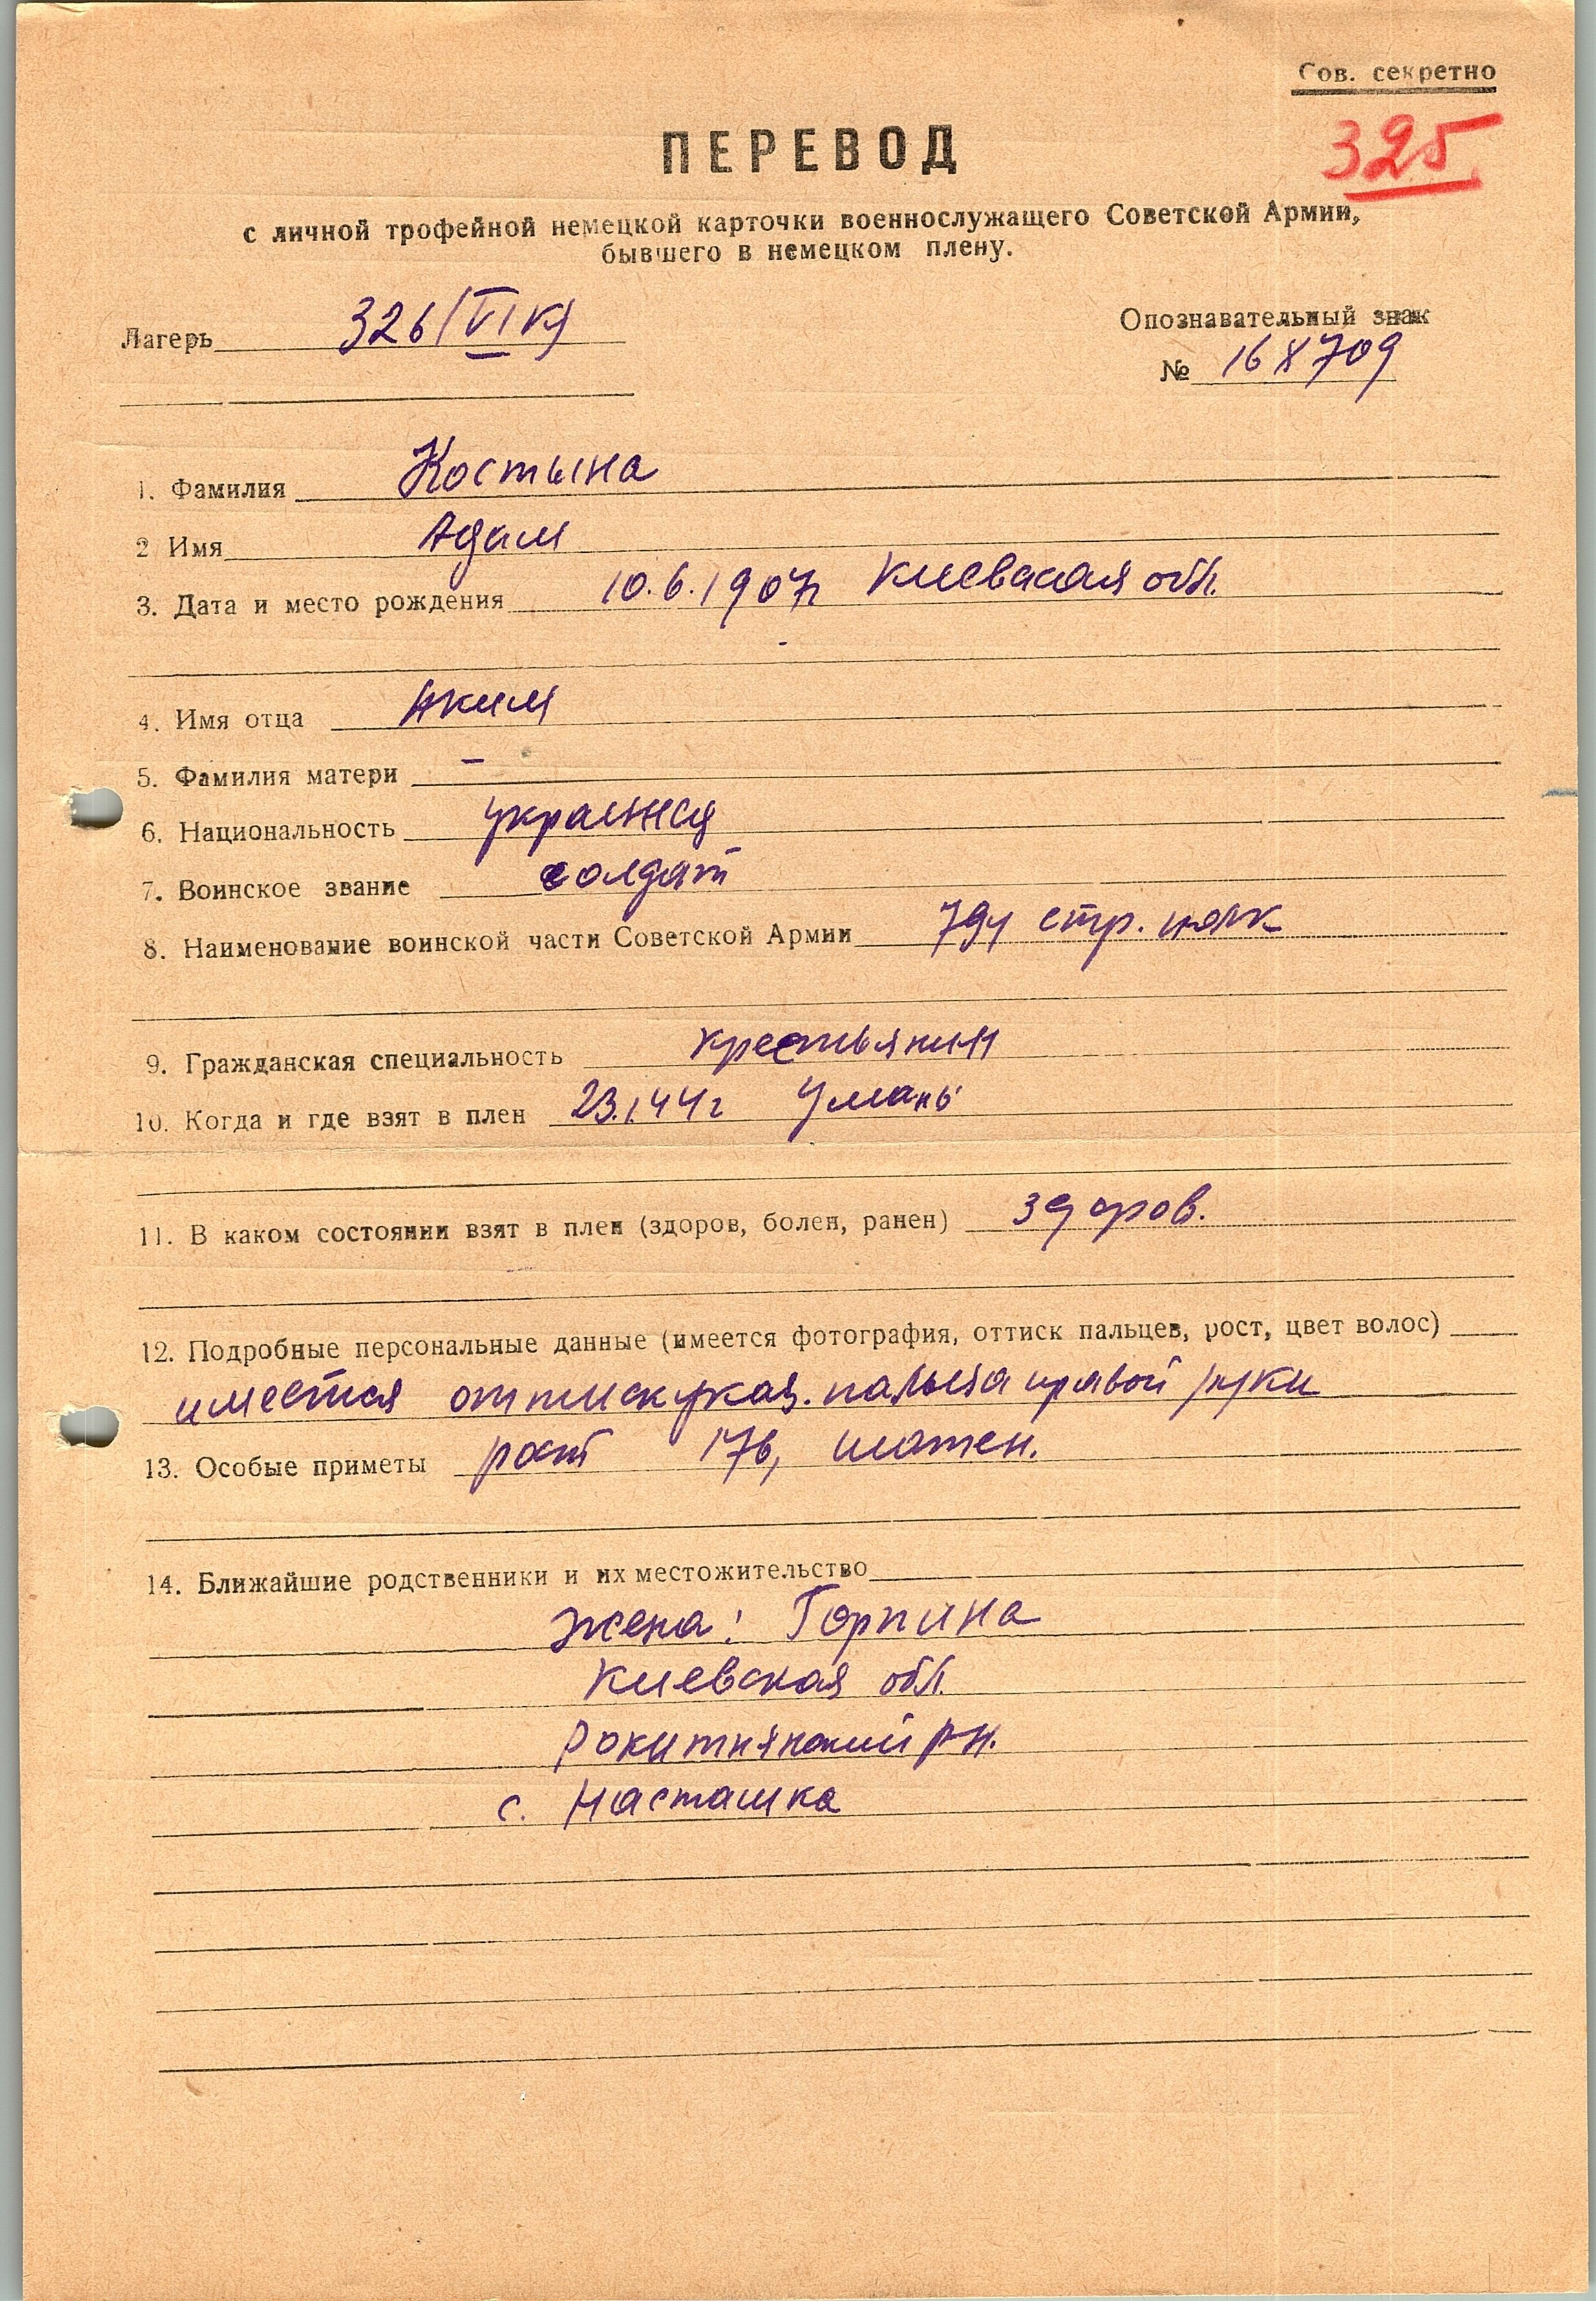 Сов. секретно
325
ПЕРЕВОД
с личной трофейной немецкой карточки военнослужащего Советской Армии,
бывшего в немецком плену.
Лагерь 326/VI К)
Опознавательный знак
№ 168709
1. Фамилия Костына
2 Имя Адам
3. Дата и место рождения 10.6.1907г Киевская обл.
4. Имя отца Аким
5. Фамилия матери –
6. Национальность украинец
7. Воинское звание солдат
8. Наименование воинской части Советской Армии 794 стр. полк
9. Гражданская специальность крестьянин
10. Когда и где взят в плен 23.1.44г Умань
11. В каком состоянии взят в плен (здоров, болен, ранен) здоров.
12. Подробные персональные данные (имеется фотография, оттиск пальцев, рост, цвет волос)
имеется оттиск указ. пальца правой руки
13. Особые приметы рост 176, шатен.
14. Ближайшие родственники и их местожительство
жена: Горпина
Киевская обл.
Рокитнянский рн.
с. Насташка